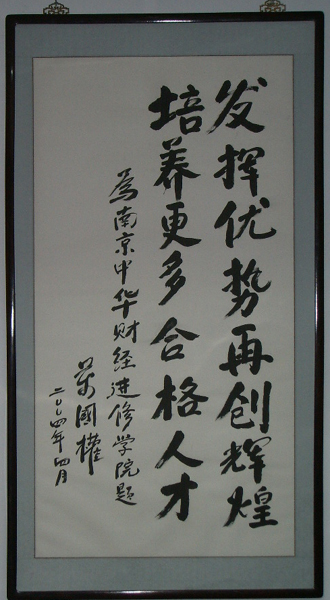 发挥优势再创辉煌
培养更多合格人才
为南京中华财经进修学院题
万国權
二〇〇四年四月